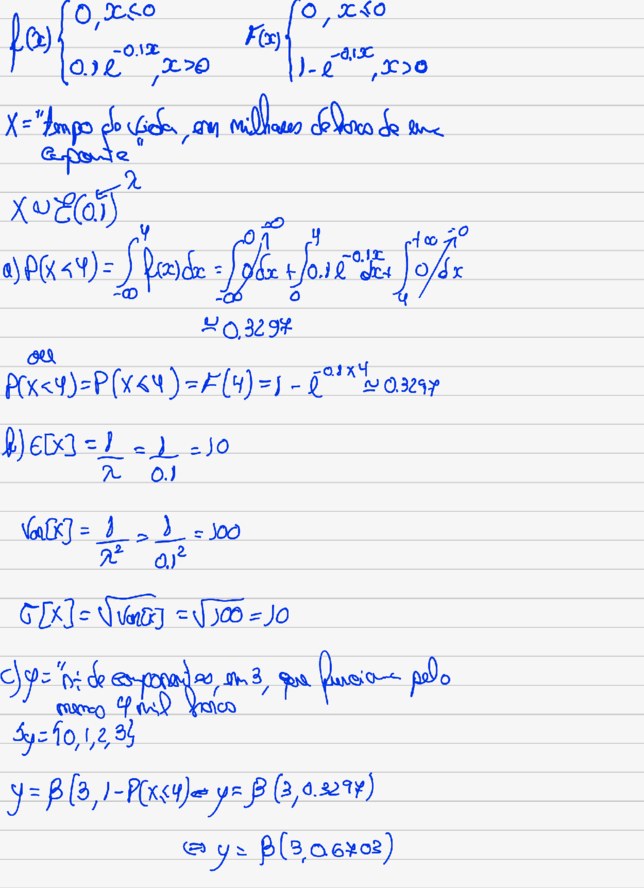 f(x) { 0, x≤0 ; 0.1e^{-0.1x}, x>0    F(x) { 0, x≤0 ; 1-e^{-0.1x}, x>0
X = "tempo de vida, em milhares de horas de
componente"
λ
X ~ Ɛ(0.1)
a) P(X<4) = ∫_{-∞}^{4} f(x)dx = ∫_{-∞}^{0} 0dx + ∫_{0}^{4} 0.1e^{-0.1x} dx + ∫_{4}^{+∞} 0 dx
≃ 0.3297
ou
P(X<4) = P(X≤4) = F(4) = 1 - e^{-0.1×4} ≃ 0.3297
b) E[X] = 1/λ = 1/0.1 = 10
Var[X] = 1/λ² = 1/0.1² = 100
σ[X] = √Var[X] = √100 = 10
c) Y = "nº de componentes, em 3, que funciona pelo
menos 4 mil horas
Sy = {0,1,2,3}
y = β(3, 1-P(X≤4) ⇔ y = β(3, 0.3297)
⇔ y = β(3, 0.6703)